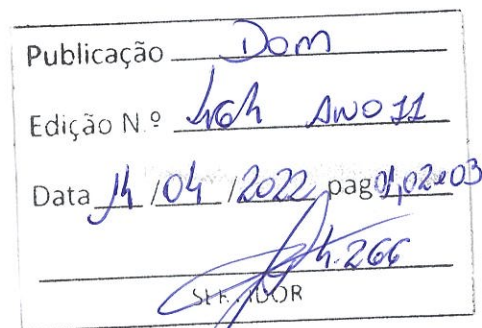 Publicação DOM
Edição N.º 464 ANO 11
Data 14/04/2022 pag 01,02e03
4.266
SERVIDOR